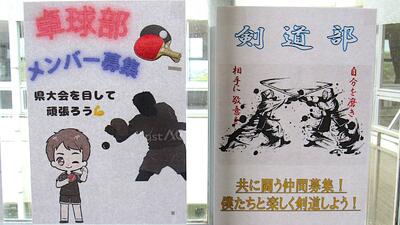 卓球部
メンバー募集
県大会を目して
頑張ろう💪
剣道部
自分を磨き
相手に敬意を
共に闘う仲間募集!
僕たちと楽しく剣道しよう!